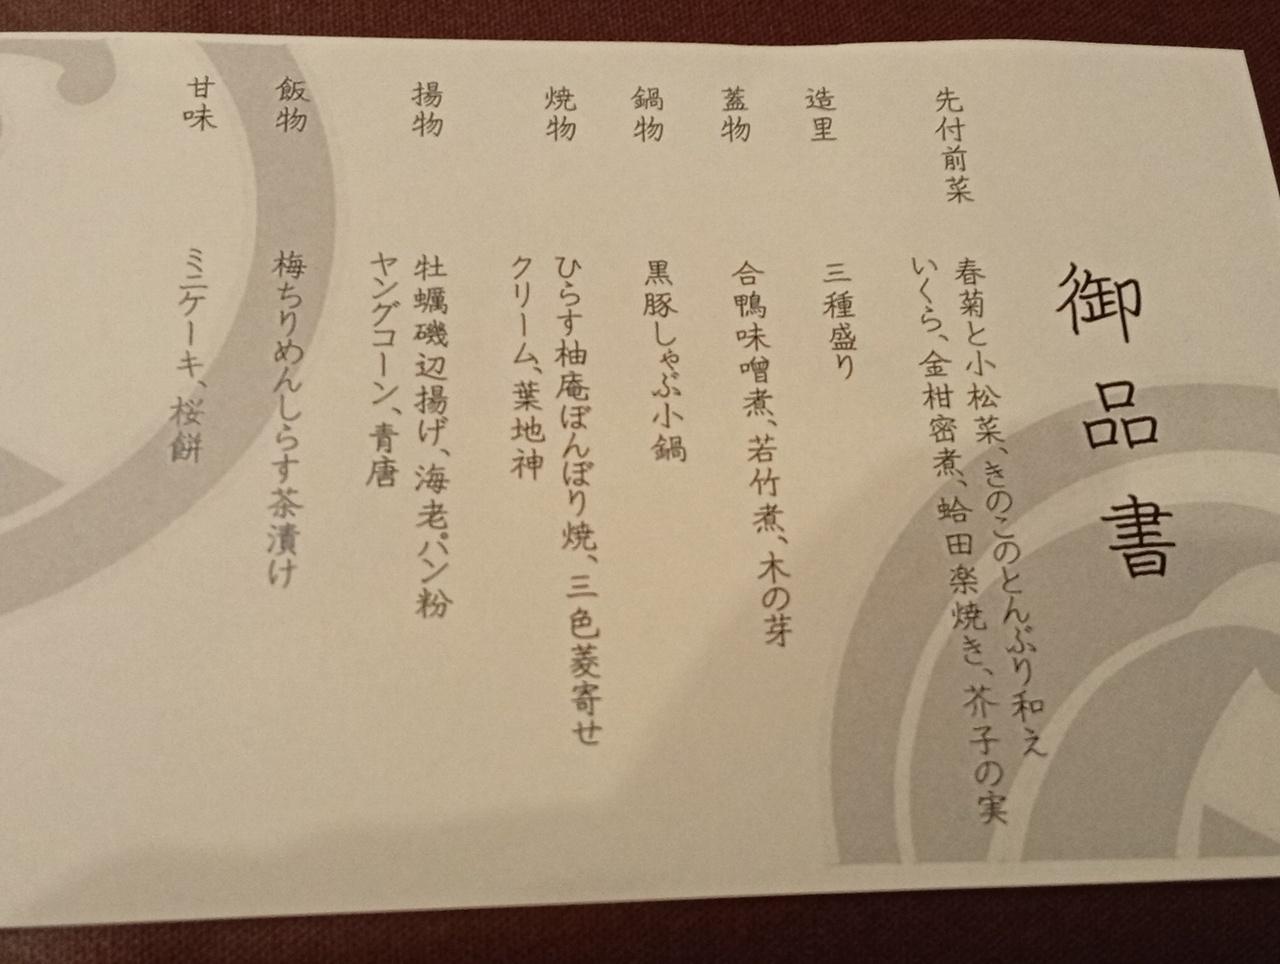 御品書
先付前菜 春菊と小松菜、きのこのとんぶり和え
いくら、金柑密煮、蛤田楽焼き、芥子の実
造里 三種盛り
蓋物 合鴨味噌煮、若竹煮、木の芽
鍋物 黒豚しゃぶ小鍋
焼物 ひらす柚庵ぼんぼり焼、三色菱寄せ
クリーム、葉地神
揚物 牡蠣磯辺揚げ、海老パン粉
ヤングコーン、青唐
飯物 梅ちりめんしらす茶漬け
甘味 ミニケーキ、桜餅